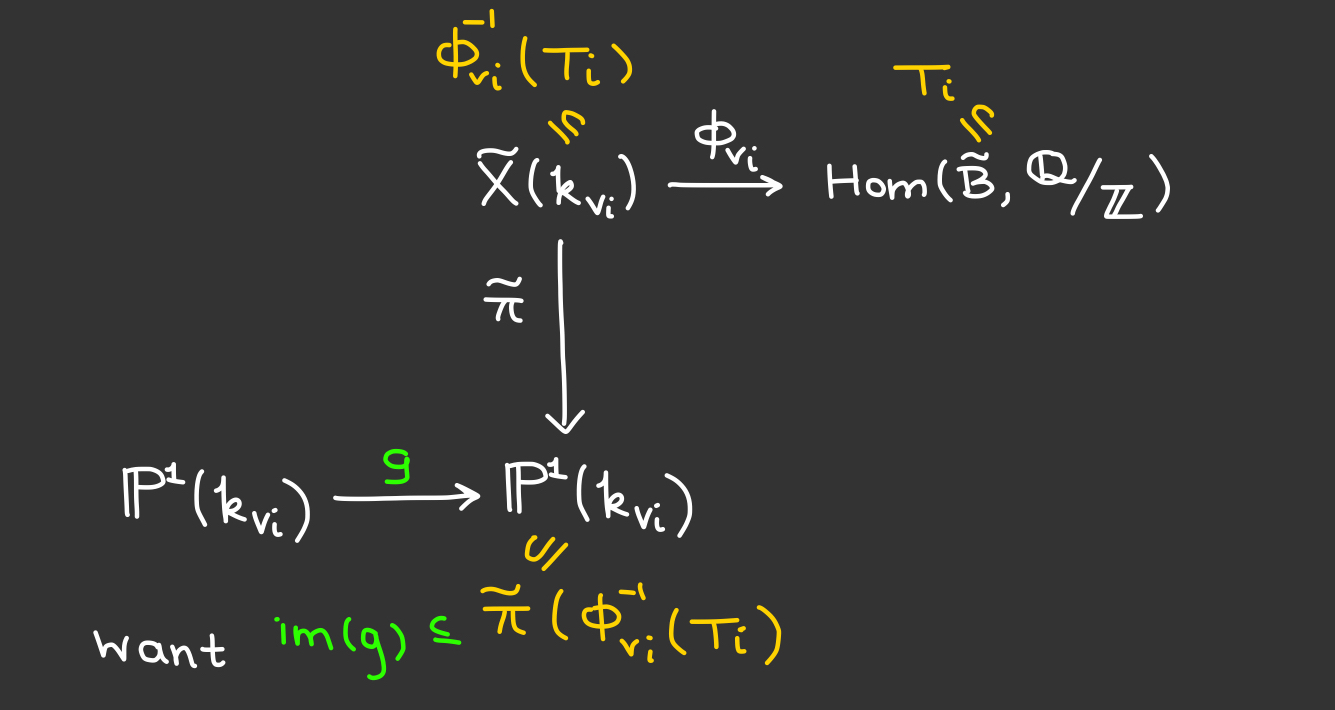 Φ_{v_i}^{-1}(T_i) T_i
⊆ ⊆
X̃(k_{v_i}) → Φ_{v_i} Hom(B̃, ℚ/ℤ)
π̃
ℙ¹(k_{v_i}) → g ℙ¹(k_{v_i})
⊆
want im(g) ⊆ π̃(Φ_{v_i}^{-1}(T_i)